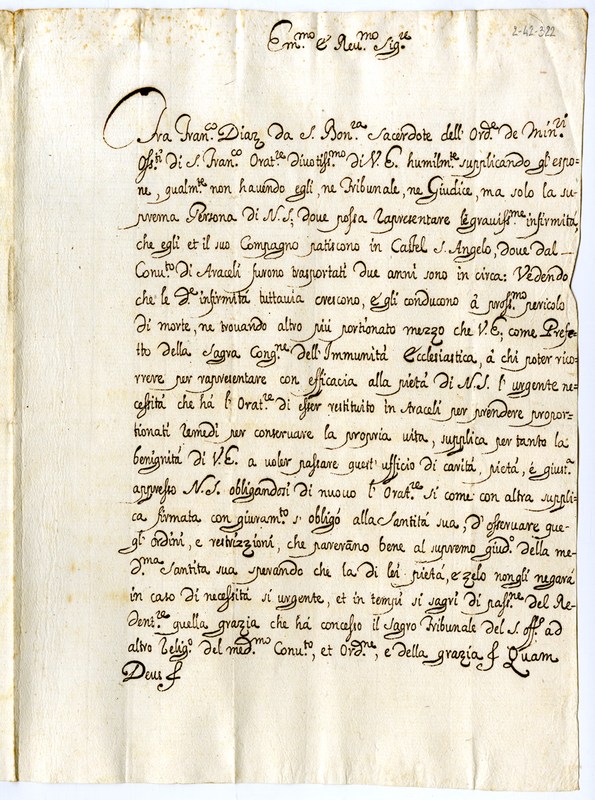 2-42-322
Em.mo è Reu.mo Sig.re
Fra Fran.co Diaz da S. Bon.ra Sacerdote dell' Ord.e de Min.ri
Oss.ti di S. Fran.co Orat.re diuotiss.mo di V. E. humilm.te supplicando gl' espo=
ne, qualm.te non hauendo egli, ne Tribunale, ne Giudice, ma solo la su=
prema Persona di N. S; doue possa rapresentare le grauiss.me infirmità,
che egli et il suo Compagno patiscono in Castel S. Angelo, doue dal
Conu.to di Araceli furono trasportati due anni sono in circa: Vedendo
che le d.e infirmità tuttauia crescono, e gli conducono à pross.mo pericolo
di morte, ne trouando altro più portionato mezzo che V. E., come Prefe=
tto della Sagra Cong.ne dell' Immunità Ecclesiastica, à chi poter rico=
rrere per rapresentare con efficacia alla pietà di N. S. l' urgente ne=
cessità che hà l' Orat.re di esser restituito in Araceli per prendere propor=
tionati remedi per conseruare la propria uita, supplica per tanto la
benignità di V. E. a uoler passare quest' ufficio di carità, pietà, è giust.a
appresso N. S. obligandosi di nuouo l' Orat.re si come con altra suppli=
ca firmata con giuram.to s' obligó alla Santità sua, d' osseruare que=
gl' ordini, e restrizzioni, che pareranno bene al supremo giud.o della me=
d.ma Santità sua sperando che la di lei pietà, e zelo non gli negarà
in caso di necessità si urgente, et in tempi si sagri di pass.ne del Re=
dent.re quella grazia che hà concesso il Sagro Tribunale del S. off.o ad
altro Relig.o del med.mo Conu.to, et Ord.ne, e della grazia &c Quam
Deus &c